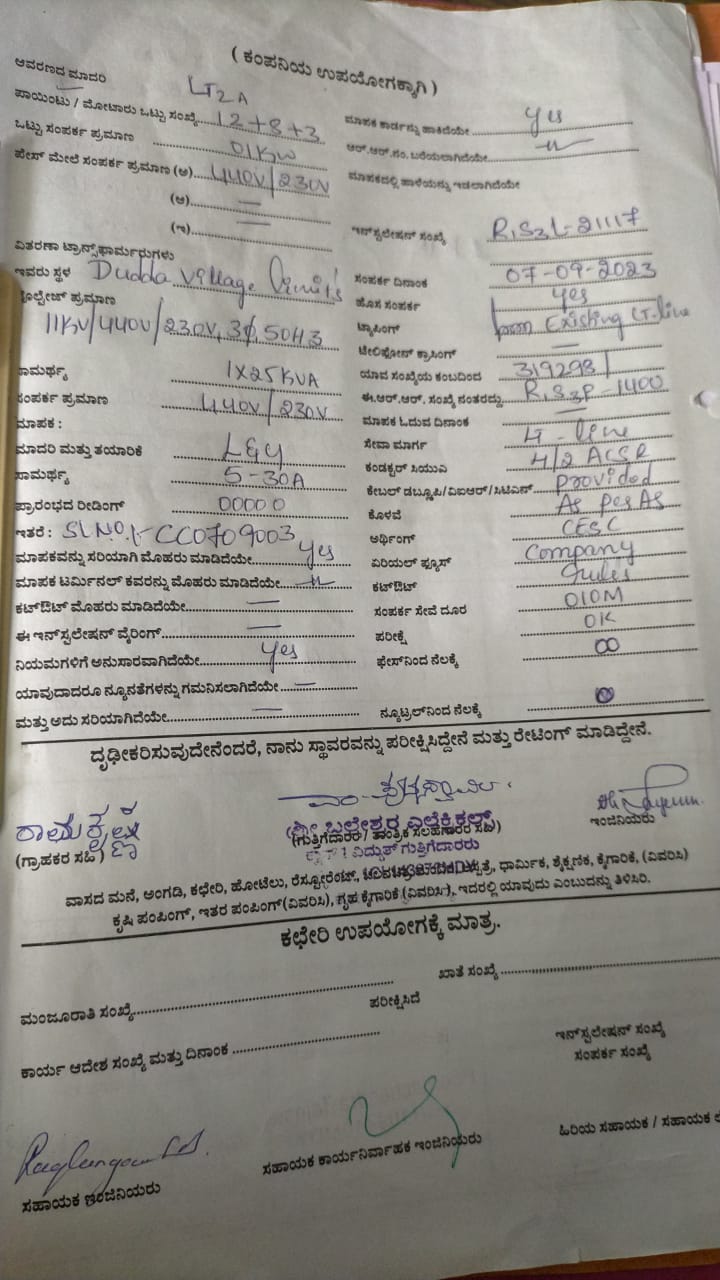 ( ಕಂಪನಿಯ ಉಪಯೋಗಕ್ಕಾಗಿ )
ಆವರಣದ ಮಾದರಿ LT2A
ಪಾಯಿಂಟು / ಮೋಟಾರು ಒಟ್ಟು ಸಂಖ್ಯೆ 12+8+3
ಮಾಪಕ ಕಾರ್ಡನ್ನು ಹಾಕಿದೆಯೇ yes
ಒಟ್ಟು ಸಂಪರ್ಕ ಪ್ರಮಾಣ 01KW
ಆರ್.ಆರ್.ನಂ. ಬರೆಯಲಾಗಿದೆಯೇ
ಫೇಸ್ ಮೇಲೆ ಸಂಪರ್ಕ ಪ್ರಮಾಣ (ಅ) 440V/230V
ಮಾಪಕದಲ್ಲಿ ಹಾಳೆಯನ್ನು ಇಡಲಾಗಿದೆಯೇ
(ಆ) —
(ಇ) —
ಇನ್‌ಸ್ಟಲೇಷನ್ ಸಂಖ್ಯೆ R1S3L-21117
ವಿತರಣಾ ಟ್ರಾನ್ಸ್‌ಫಾರ್ಮರುಗಳು
ಇವರು ಸ್ಥಳ Dudda village limits
ಸಂಪರ್ಕ ದಿನಾಂಕ 07-09-2023
ವೋಲ್ಟೇಜ್ ಪ್ರಮಾಣ
ಹೊಸ ಸಂಪರ್ಕ yes
11KV/440V/230V, 3ϕ, 50H3
ಟ್ಯಾಪಿಂಗ್ from Existing LT-line
ಟೆಲಿಫೋನ್ ಕ್ರಾಸಿಂಗ್ —
ಸಾಮರ್ಥ್ಯ 1X25KVA
ಯಾವ ಸಂಖ್ಯೆಯ ಕಂಬದಿಂದ 319298/
ಸಂಪರ್ಕ ಪ್ರಮಾಣ 440V/230V
ಈ.ಆರ್.ಆರ್. ಸಂಖ್ಯೆ ನಂತರದ್ದು R1S3P-1400
ಮಾಪಕ :
ಮಾಪಕ ಓದುವ ದಿನಾಂಕ —
ಮಾದರಿ ಮತ್ತು ತಯಾರಿಕೆ L&G
ಸೇವಾ ಮಾರ್ಗ LT-line
ಸಾಮರ್ಥ್ಯ 5-30A
ಕಂಡಕ್ಟರ್ ಸಿಯುವಿ 4/2 ACSR
ಪ್ರಾರಂಭದ ರೀಡಿಂಗ್ 00000
ಕೇಬಲ್ ಡಬ್ಲೂಪಿ/ವಿಐಆರ್/ಸಿಟಿಎಸ್ provided
ಇತರೆ : Sl.No:- CC0709003
ಕೊಳವೆ As per AS
ಮಾಪಕವನ್ನು ಸರಿಯಾಗಿ ಮೊಹರು ಮಾಡಿದೆಯೇ yes
ಅರ್ಥಿಂಗ್ CESC
ಮಾಪಕ ಟರ್ಮಿನಲ್ ಕವರನ್ನು ಮೊಹರು ಮಾಡಿದೆಯೇ
ಏರಿಯಲ್ ಫ್ಯೂಸ್ Company
ಕಟ್‌ಔಟ್ ಮೊಹರು ಮಾಡಿದೆಯೇ —
ಕಟ್‌ಔಟ್ rules
ಈ ಇನ್‌ಸ್ಟಲೇಷನ್ ವೈರಿಂಗ್ —
ಸಂಪರ್ಕ ಸೇವೆ ದೂರ 010M
ನಿಯಮಗಳಿಗೆ ಅನುಸಾರವಾಗಿದೆಯೇ yes
ಪರೀಕ್ಷೆ OK
ಯಾವುದಾದರೂ ನ್ಯೂನತೆಗಳನ್ನು ಗಮನಿಸಲಾಗಿದೆಯೇ —
ಫೇಸ್‌ನಿಂದ ನೆಲಕ್ಕೆ ∞
ಮತ್ತು ಅದು ಸರಿಯಾಗಿದೆಯೇ —
ನ್ಯೂಟ್ರಲ್‌ನಿಂದ ನೆಲಕ್ಕೆ ∞
ದೃಢೀಕರಿಸುವುದೇನೆಂದರೆ, ನಾನು ಸ್ಥಾವರವನ್ನು ಪರೀಕ್ಷಿಸಿದ್ದೇನೆ ಮತ್ತು ರೇಟಿಂಗ್ ಮಾಡಿದ್ದೇನೆ.
ರಾಮಕೃಷ್ಣ
(ಗ್ರಾಹಕರ ಸಹಿ)
ಶ್ರೀ ಬಲೇಶ್ವರ ಎಲೆಕ್ಟ್ರಿಕಲ್ಸ್
(ಗುತ್ತಿಗೆದಾರರ/ ತಾಂತ್ರಿಕ ಸಲಹಾಗಾರರ ಸಹಿ)
ವಿದ್ಯುತ್ ಗುತ್ತಿಗೆದಾರರು
ಇಂಜಿನಿಯರು
ವಾಸದ ಮನೆ, ಅಂಗಡಿ, ಕಛೇರಿ, ಹೋಟೆಲು, ರೆಸ್ಟೋರೆಂಟ್, ಧಾರ್ಮಿಕ, ಶೈಕ್ಷಣಿಕ, ಕೈಗಾರಿಕೆ, (ವಿವರಿಸಿ)
ಕೃಷಿ ಪಂಪಿಂಗ್, ಇತರ ಪಂಪಿಂಗ್(ವಿವರಿಸಿ), ಗೃಹ ಕೈಗಾರಿಕೆ (ವಿವರಿಸಿ), ಇದರಲ್ಲಿ ಯಾವುದು ಎಂಬುದನ್ನು ತಿಳಿಸಿರಿ.
ಕಛೇರಿ ಉಪಯೋಗಕ್ಕೆ ಮಾತ್ರ.
ಮಂಜೂರಾತಿ ಸಂಖ್ಯೆ
ಖಾತೆ ಸಂಖ್ಯೆ
ಪರೀಕ್ಷಿಸಿದೆ
ಕಾರ್ಯ ಆದೇಶ ಸಂಖ್ಯೆ ಮತ್ತು ದಿನಾಂಕ
ಇನ್‌ಸ್ಟಲೇಷನ್ ಸಂಖ್ಯೆ
ಸಂಪರ್ಕ ಸಂಖ್ಯೆ
ಸಹಾಯಕ ಇಂಜಿನಿಯರು
ಸಹಾಯಕ ಕಾರ್ಯನಿರ್ವಾಹಕ ಇಂಜಿನಿಯರು
ಹಿರಿಯ ಸಹಾಯಕ / ಸಹಾಯಕ